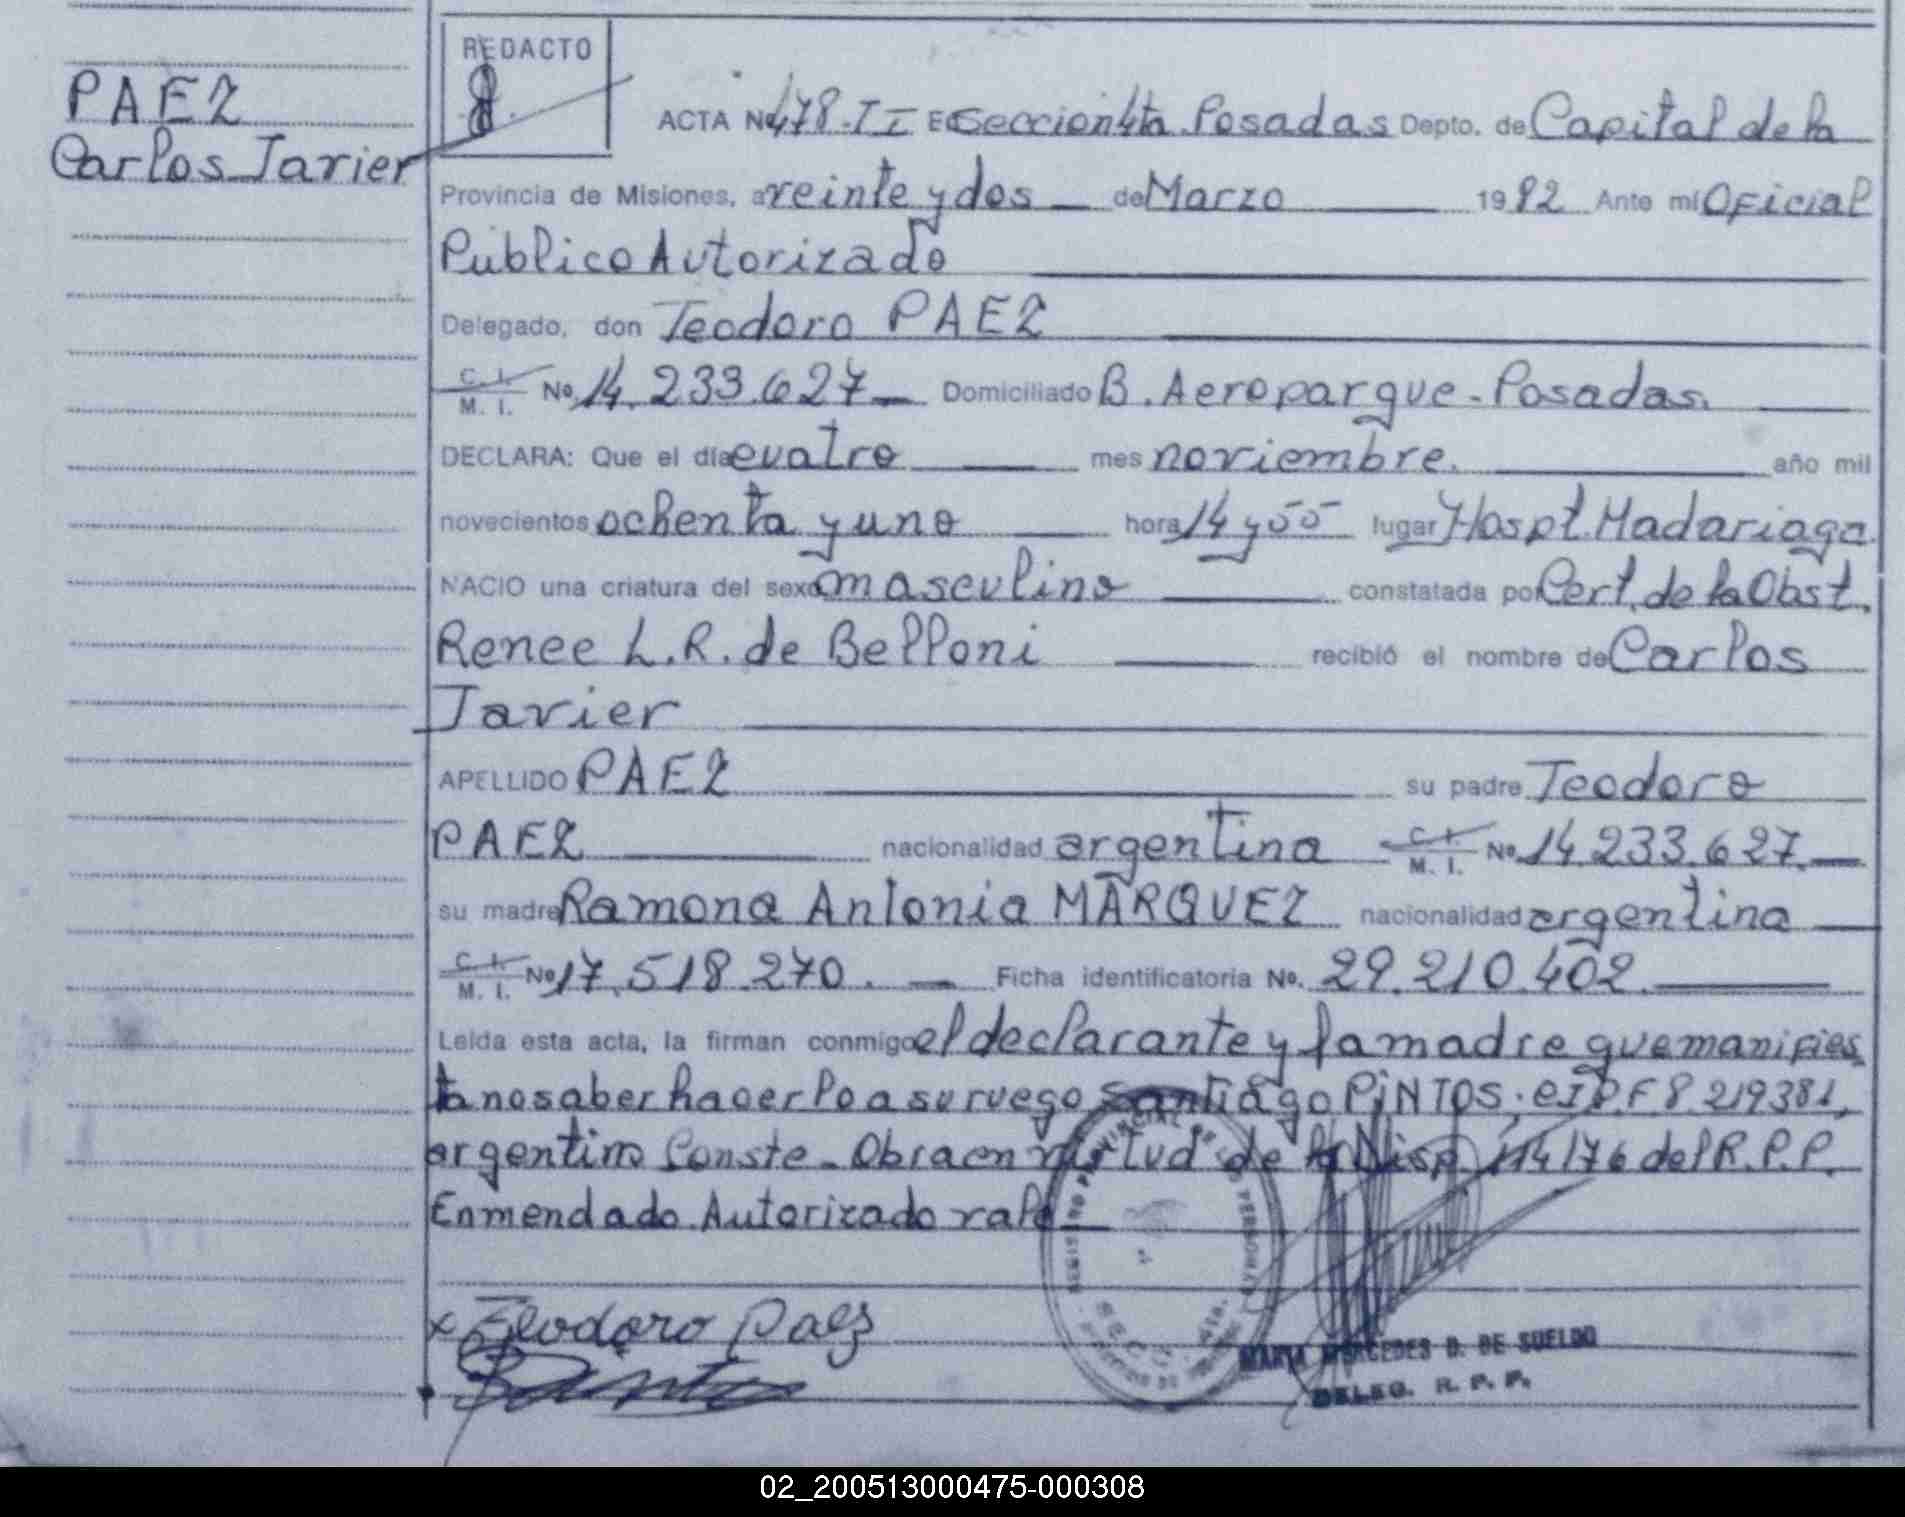 REDACTO
PAEZ
Carlos Javier
ACTA Nº 478-II E Seccion 4ta Posadas Depto. de Capital de la
Provincia de Misiones, a veinte y dos de Marzo 1982 Ante mí Oficial
Público Autorizado
Delegado, don Teodoro PAEZ
C. I. M. I. Nº 14.233.627 Domiciliado B. Aeroparque - Posadas.
DECLARA: Que el día cuatro mes noviembre. año mil
novecientos ochenta y uno hora 14 y 55 lugar Hospt. Madariaga.
NACIO una criatura del sexo masculino constatada por Cert. de la Obst.
Renee L. R. de Belloni recibió el nombre de Carlos
Javier
APELLIDO PAEZ su padre Teodoro
PAEZ nacionalidad argentina C. I. M. I. Nº 14.233.627.
su madre Ramona Antonia MARQUEZ nacionalidad argentina
C. I. M. I. Nº 17.518.270. Ficha identificatoria No. 29.210.402.
Leída esta acta, la firman conmigo el declarante y la madre que manifies
ta no saber hacerlo a su ruego Santiago PiNTOS, CIPF 8 219381,
argentino Conste. Obra en virtud de la Disp. 114/76 del R.P.P.
Enmendado Autorizado vale
x Teodoro Paez
REGISTRO PROVINCIAL DE LAS PERSONAS
SECC. 4ta.
MARIA MERCEDES D. DE SUELDO
DELEG. R. P. P.
02_200513000475-000308